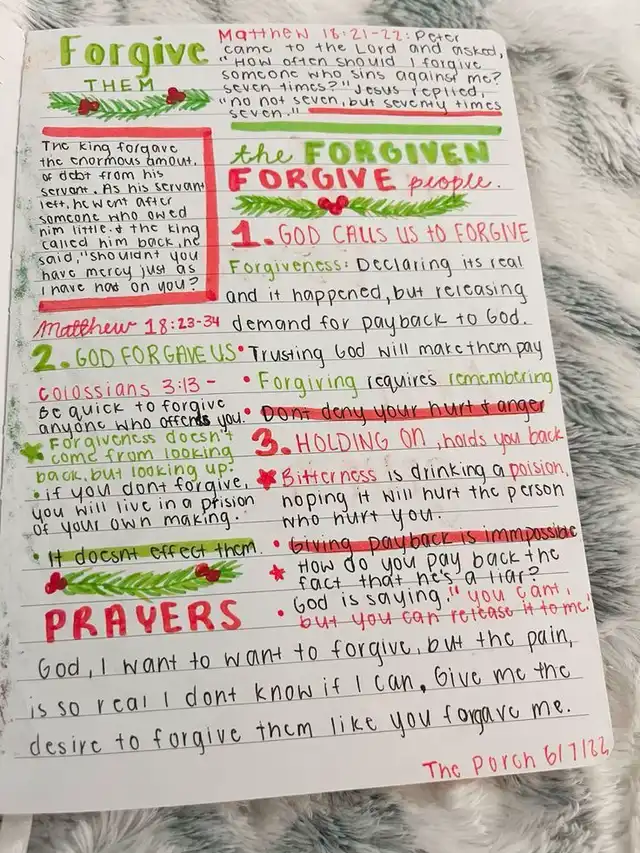 Forgive
THEM
Matthew 18:21-22: Peter
came to the Lord and asked,
"How often should I forgive
someone who sins against me?
seven times?" Jesus replied,
"no not seven, but seventy times
seven."
The king forgave
the enormous amout.
of debt from his
servant. As his servant
left, he went after
someone who owed
him little. & the king
called him back, he
said, "shouldnt you
have mercy just as
I have had on you?
Matthew 18:23-34
the FORGIVEN
FORGIVE people.
1. GOD CALLS US to FORGIVE
Forgiveness: Declaring its real
and it happened, but releasing
demand for payback to God.
• Trusting God will make them pay
• Forgiving requires remembering
• Dont deny your hurt & anger
2. GOD FORGAVE US
Colossians 3:13 -
Be quick to forgive
anyone who offends you.
Forgiveness doesn't
come from looking
back, but looking up.
• if you dont forgive,
you will live in a prision
of your own making.
• It doesnt effect them.
3. HOLDING ON, holds you back
Bitterness is drinking a poision,
hoping it will hurt the person
who hurt you.
• Giving payback is immpossible
How do you pay back the
fact that he's a liar?
• God is saying, "you cant,
but you can release it to me."
PRAYERS
God, I want to want to forgive, but the pain,
is so real I dont know if I can. Give me the
desire to forgive them like you forgave me.
The Porch 6/7/22